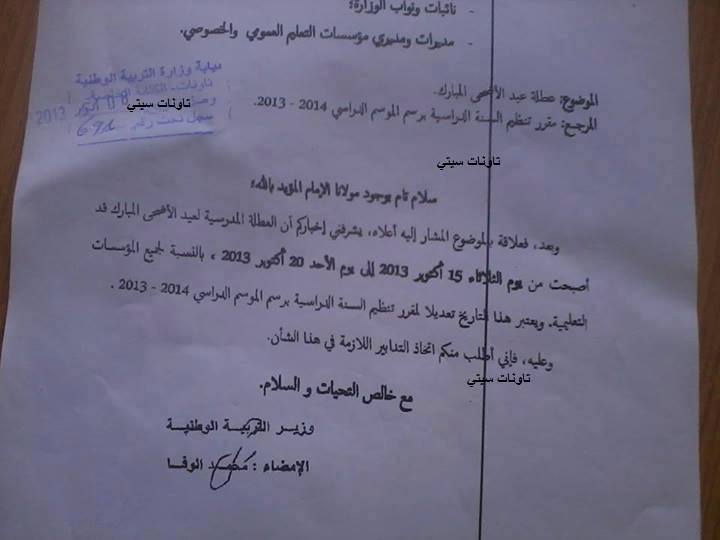 - نائبات ونواب الوزارة؛
- مديرات ومديري مؤسسات التعليم العمومي والخصوصي.
نيابة وزارة التربية الوطنية
تاونات
2013
سجل تحت رقم
تاونات سيتي
الموضوع: عطلة عيد الأضحى المبارك.
المرجع: مقرر تنظيم السنة الدراسية برسم الموسم الدراسي 2014 - 2013.
تاونات سيتي
سلام تام بوجود مولانا الإمام المؤيد بالله؛
وبعد، فعلاقة بالموضوع المشار إليه أعلاه، يشرفني إخباركم أن العطلة المدرسية لعيد الأضحى المبارك قد
أصبحت من يوم الثلاثاء 15 أكتوبر 2013 إلى يوم الأحد 20 أكتوبر 2013 ، بالنسبة لجميع المؤسسات
التعليمية. ويعتبر هذا التاريخ تعديلا لمقرر تنظيم السنة الدراسية برسم الموسم الدراسي 2014 - 2013 .
وعليه، فإني أطلب منكم اتخاذ التدابير اللازمة في هذا الشأن.
تاونات سيتي
مع خالص التحيات و السلام.
وزير التربية الوطنية
الإمضاء : محمد الوفا